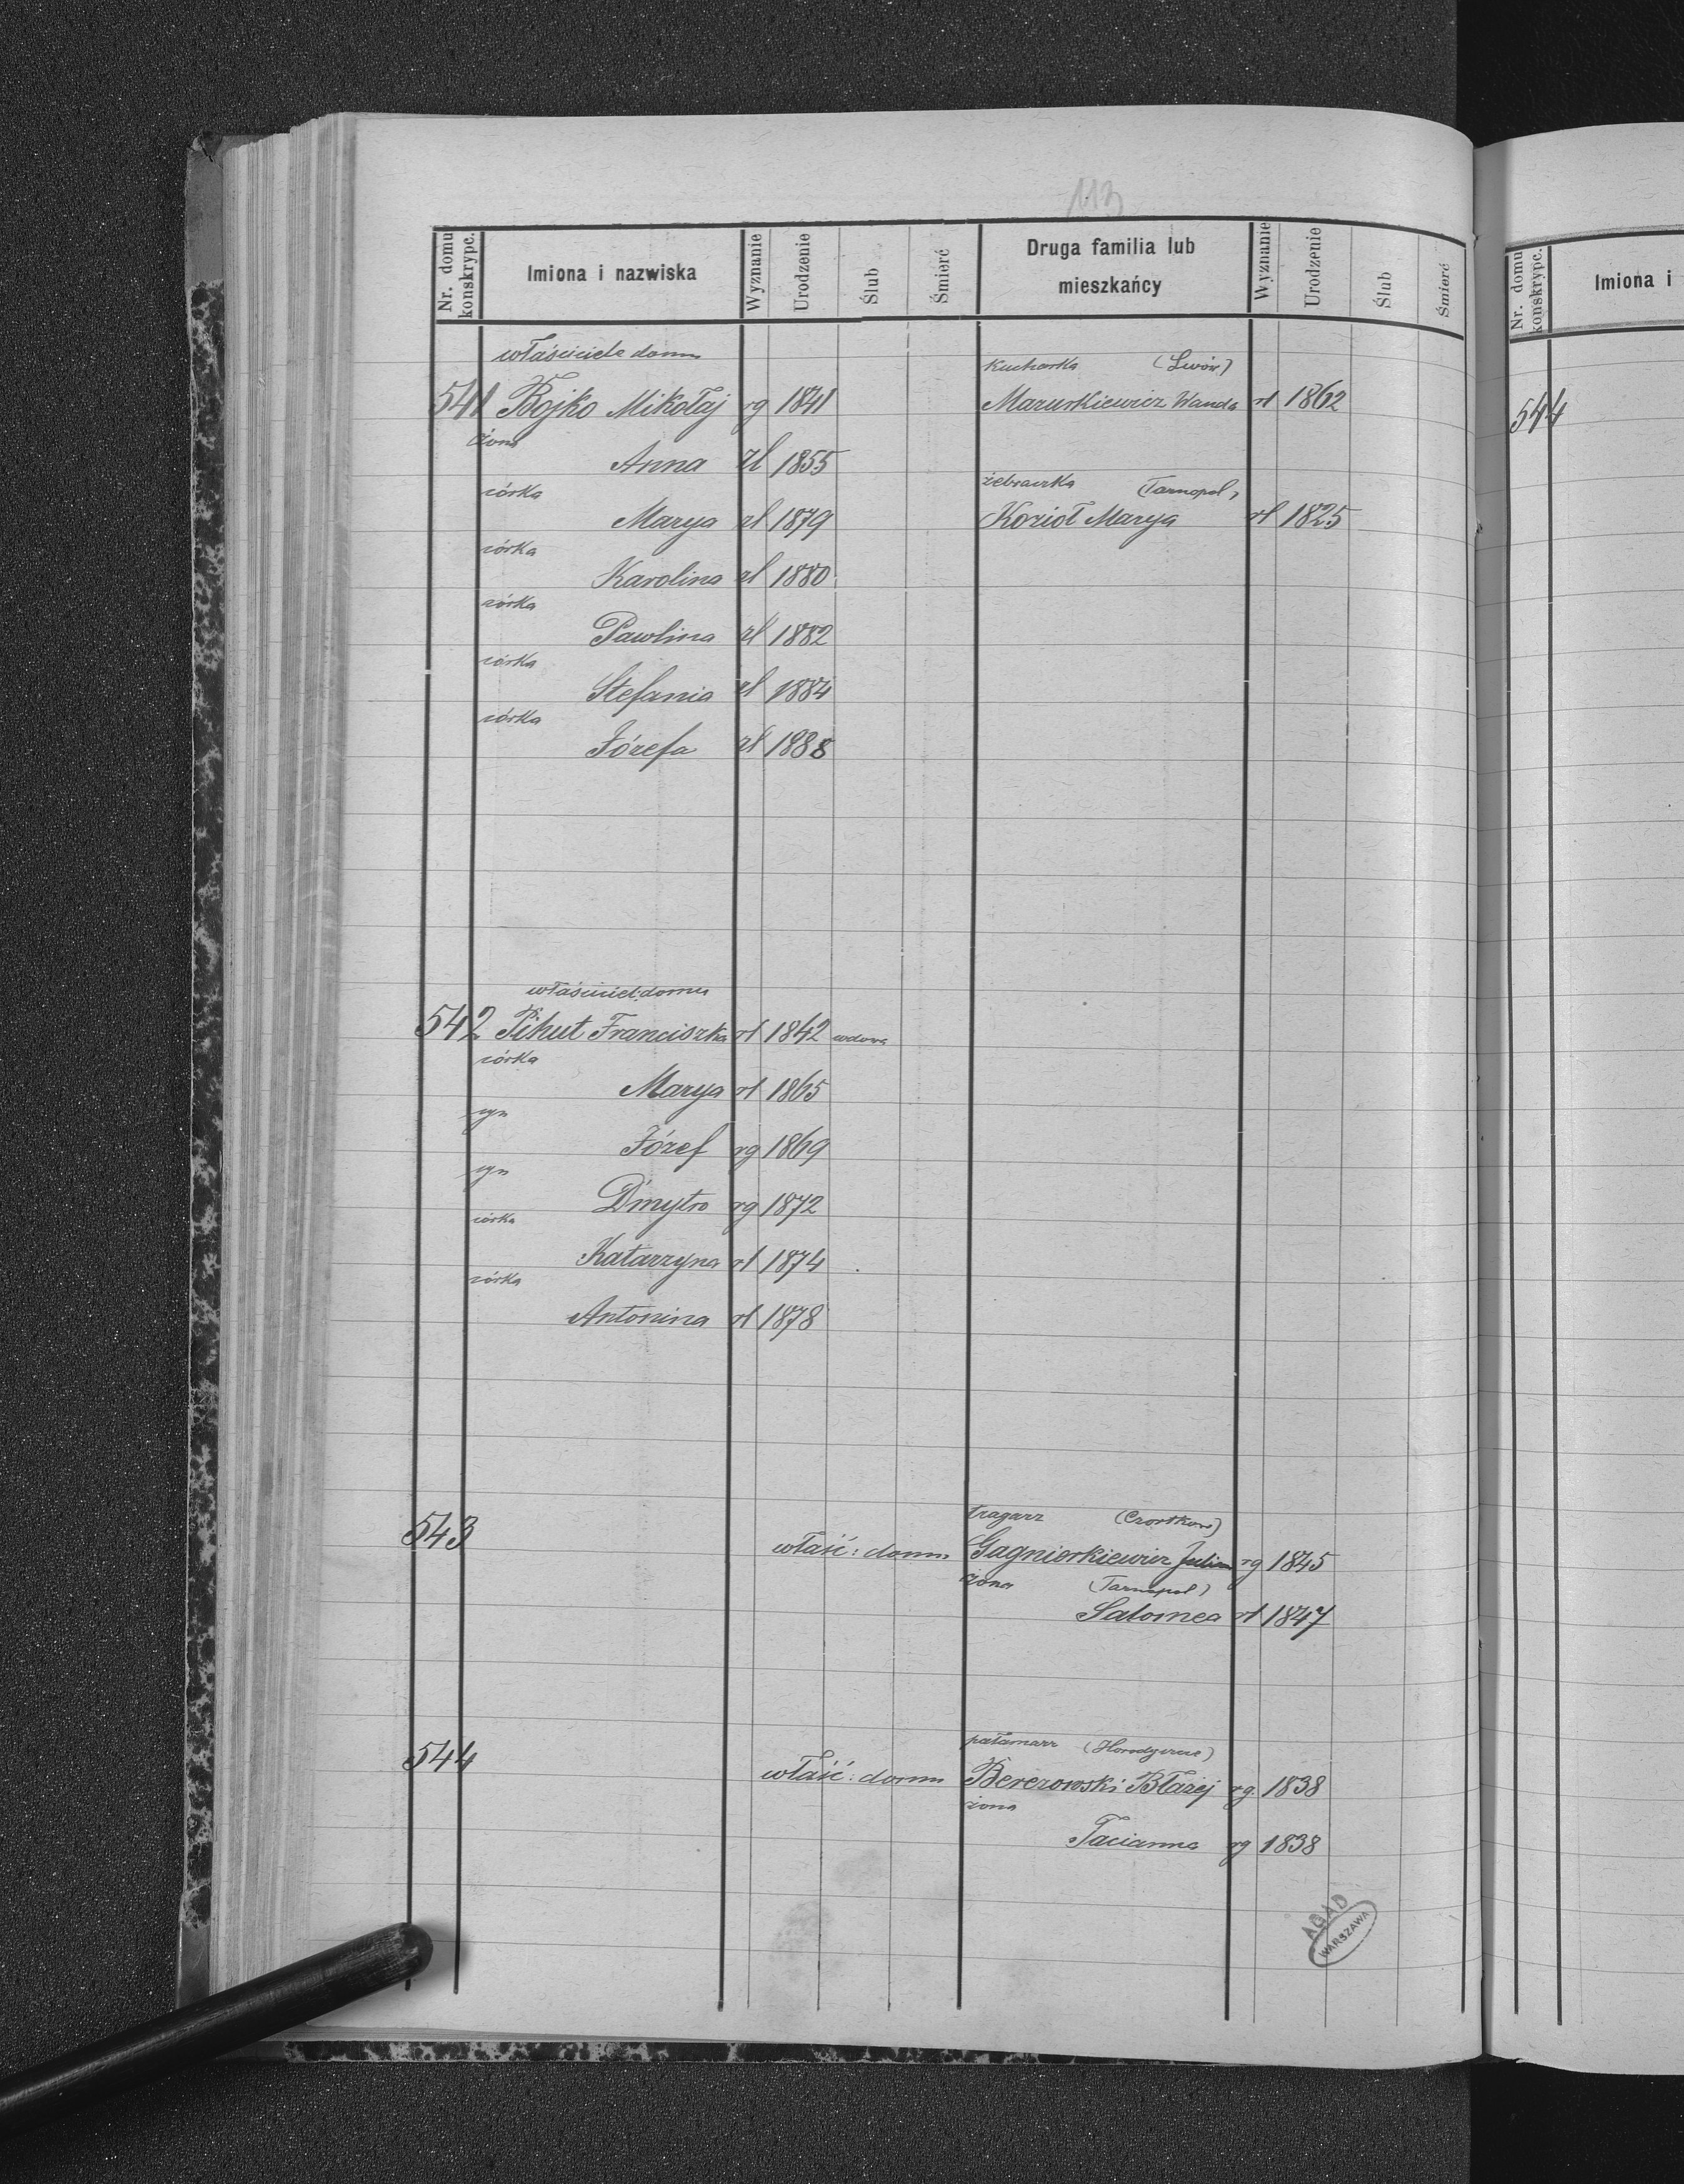 113
Nr. domu konskrypc.
Imiona i nazwiska
Wyznanie
Urodzenie
Ślub
Śmierć
Druga familia lub mieszkańcy
Wyznanie
Urodzenie
Ślub
Śmierć
Nr. domu konskrypc.
Imiona i
właściciele domu
kucharka (Lwów)
541 Bojko Mikołaj rg 1841
Maruszkiewicz Wanda rł 1862
544
żona
Anna rł 1855
żebraczka (Tarnopol)
córka
Marya rł 1879
Kozioł Marya rł 1825
córka
Karolina rł 1880
córka
Pawlina rł 1882
córka
Stefania rł 1884
córka
Józefa rł 1888
właściciel: domu
542 Pihut Franciszka rł 1842 wdowa
córka
Marya rł 1865
syn
Józef rg 1869
syn
Dmytro rg 1872
córka
Katarzyna rł 1874
córka
Antonina rł 1878
tragarz (Czortkow)
543 właść: domu Julian rg 1845
żona (Tarnopol)
Salomea rł 1847
pałamarz
544 właść: domu Berezowski Błażej rg. 1838
żona
Tacianna rg 1838
AGAD
WARSZAWA